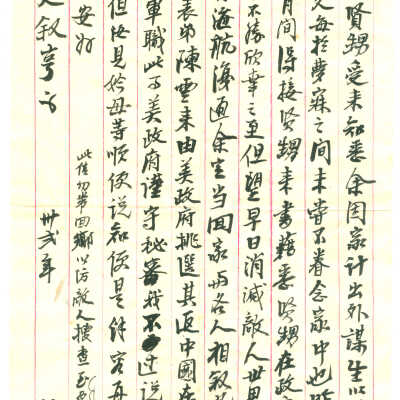 賢甥受未知悉余因家計出外謀生以
又每於夢寐之間未嘗不眷念家中也
月間得接賢甥来書藉悉賢甥在政
不勝欣幸之至但望早日消滅敵人世界
航海通余定当回家與各人相叙
表弟陳雲来由美政府挑選其返中國在
軍職此乃美政府謹守秘密我不过说
但汝見妗母等順便说知便是餘容再
安好
此信切莫回鄉以防敵人搜查
叙亨 卅弍年